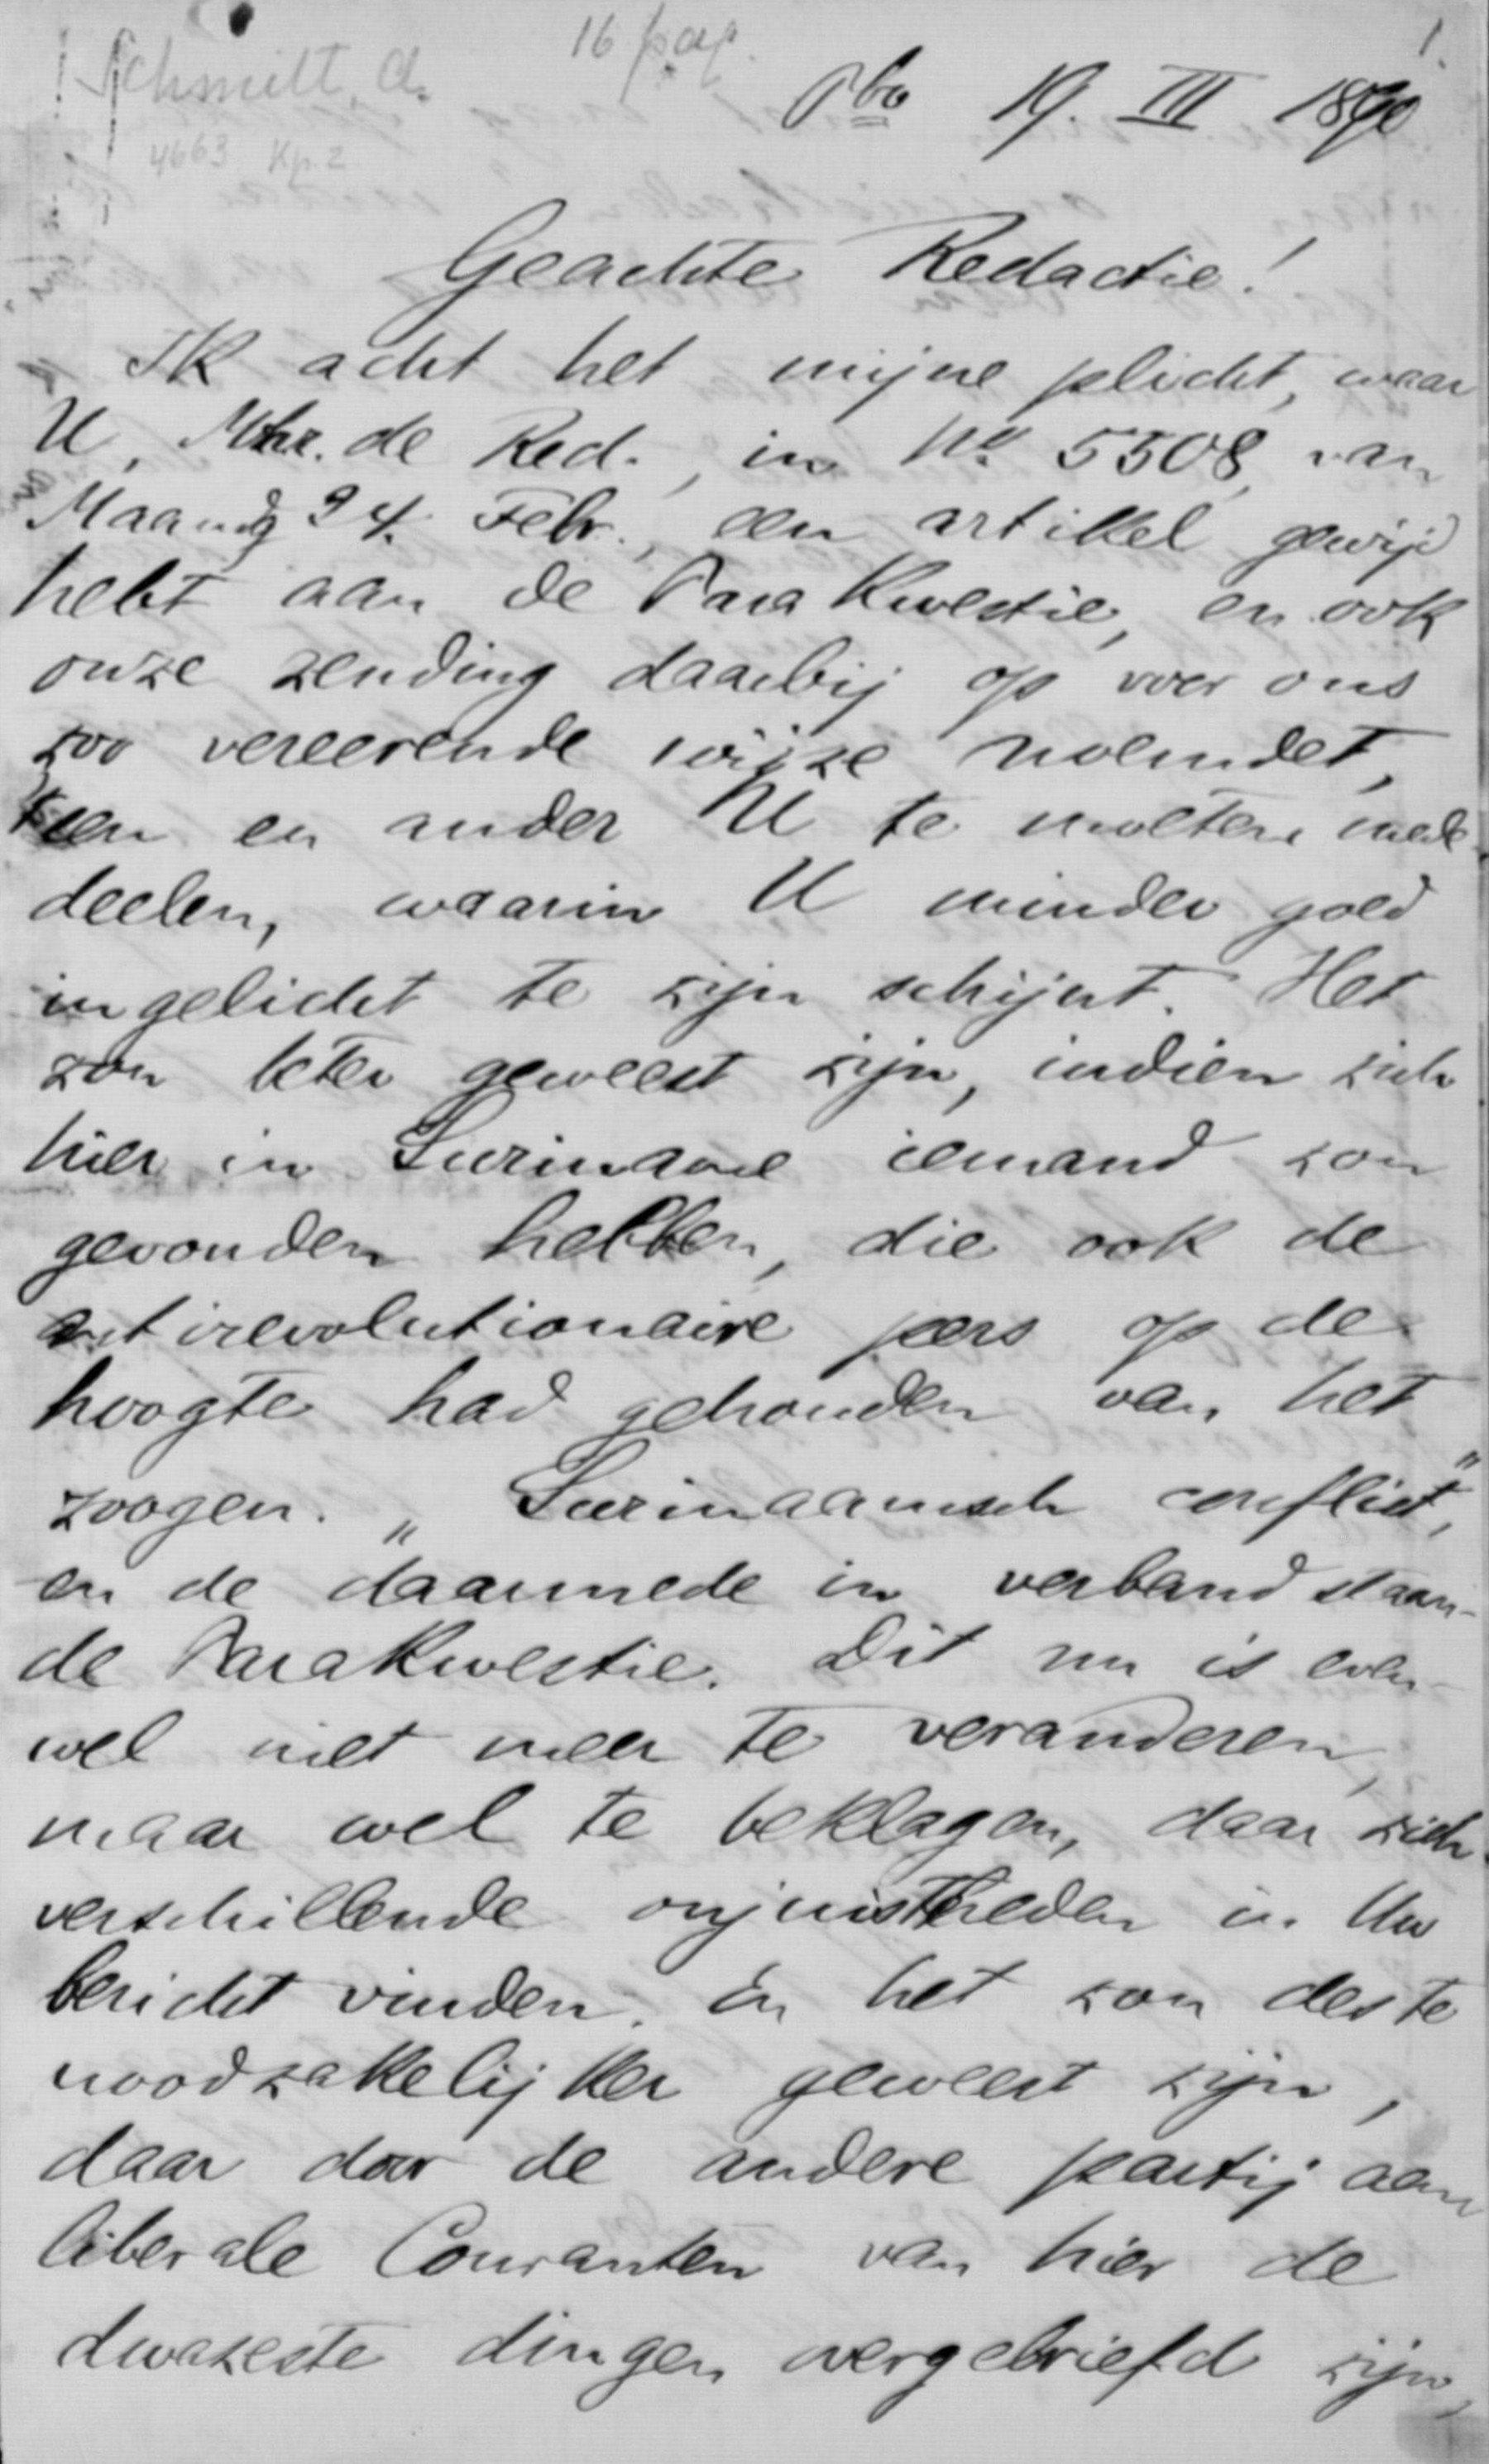 16 pag. 1.
Schmitt, d.
Pbo 19. III 1890
4663 Kp. 2
Geachte Redactie!
Ik acht het mijne plicht, waar
U, Mhr. de Red., in No 5508 van
Maandg 24. Febr., een artikel gewijd
hebt aan de Para Kwestie, en ook
onze zending daarbij op voor ons
zoo vereerende wijze noemdet,
een en ander U te moeten mede-
deelen, waarin U minder goed
ingelicht te zijn schijnt. Het
zou beter geweest zijn, indien zich
hier in Suriname iemand zou
gevonden hebben, die ook de
antirevolutionaire pers op de
hoogte had gehouden van het
zoogen. „Surinaamsch conflict",
en de daarmede in verband staan-
de ParaKwestie. Dit nu is even-
wel niet meer te veranderen,
maar wel te beklagen, daar zich
verschillende onjuistheden in Uw
bericht vinden. En het zou des te
noodzakelijker geweest zijn,
daar door de andere partij aan
liberale Couranten van hier de
dwazeste dingen overgebriefd zijn,